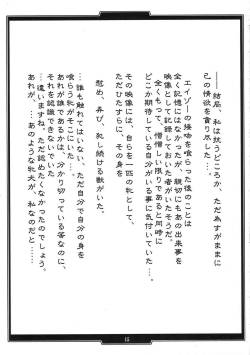 ――結局、私は抗うどころか、ただ為すがままに
己の情欲を貪り尽した…。
エイゾーの接吻を喰らった後のことは
全く記憶にはなかったが、親切にもあの出来事を
映像として記録しておいた者がいたそうだ。
全くもって、憎憎しい限りであると同時に
どこか期待している自分がいる事に気付いていた…。
その映像には、自らを一匹の牝として、
ただひたすらに、その身を
慰め、弄び、犯し続ける獣がいた。
…誰も触れてはいない、ただ自分で自分の身を
喰らう牝がそこにいた…。
あれが誰であるかは、分かり切っている筈なのに、
それを認識できないでいた
…違いますね。ただ認めたくなかったのでしょう。
あれが、…あのような牝犬が、私なのだと……
15